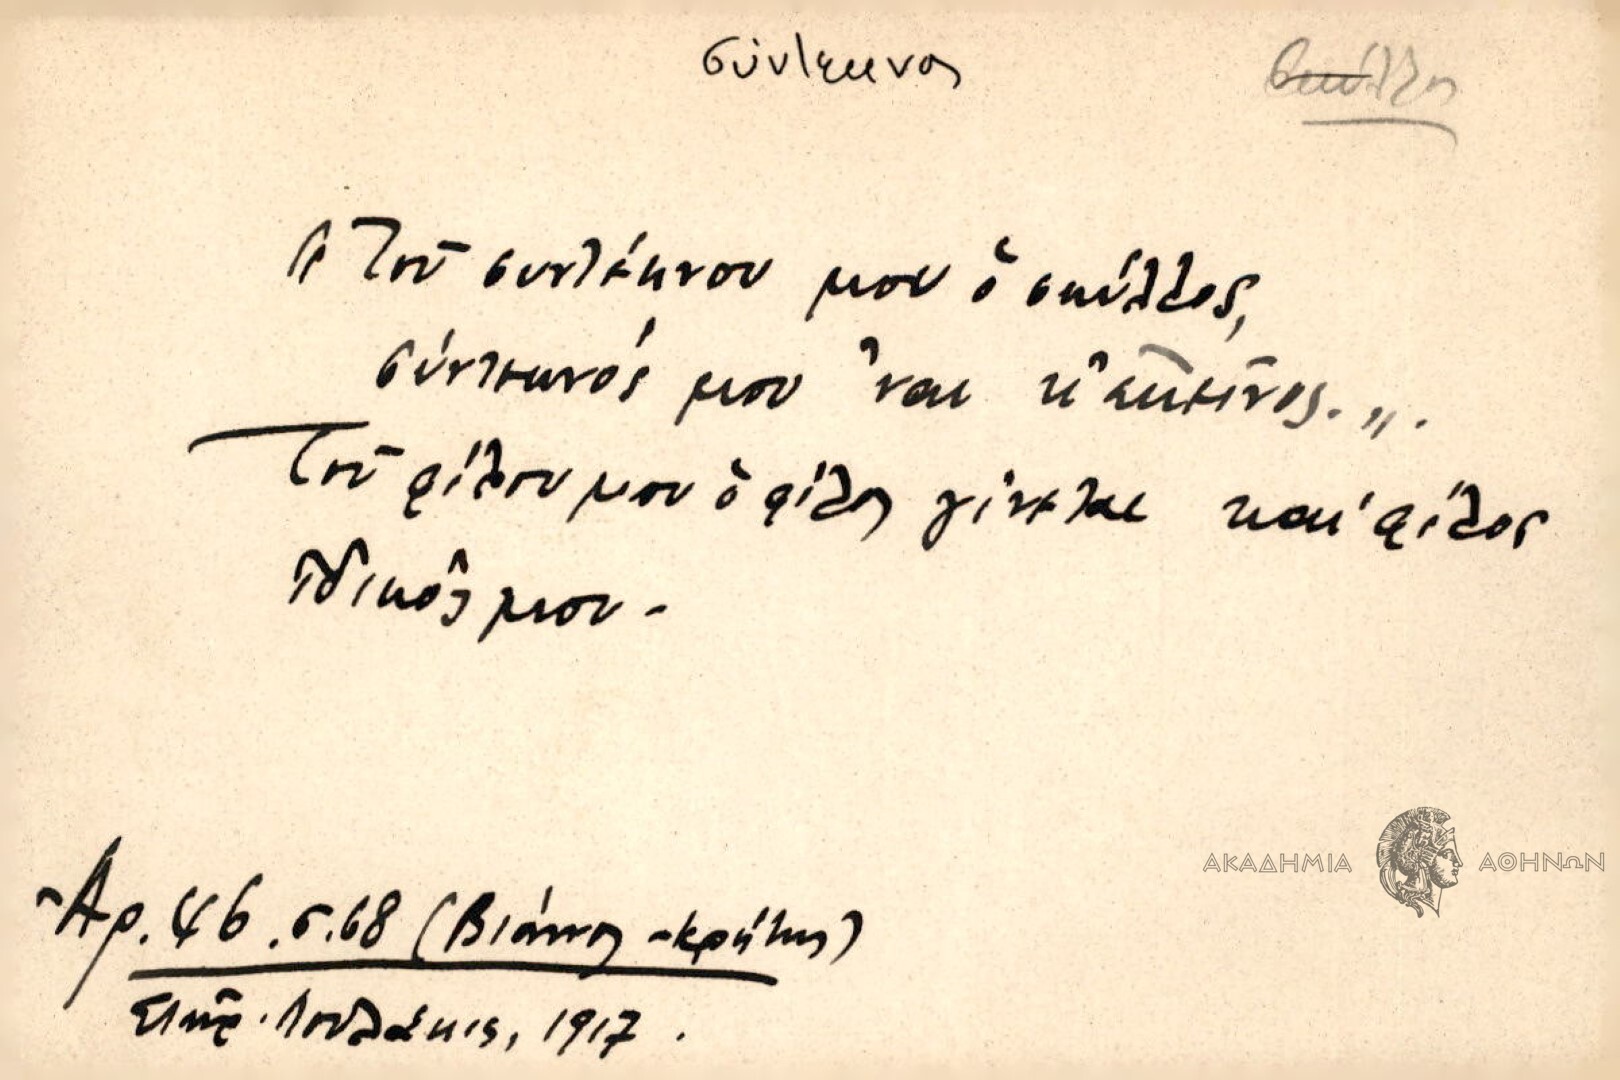 σύντεκνος
σκύλλος
"Τοῦ συντέκνου μου ὁ σκύλλος,
σύντεκνός μου 'ναι κ' ἐκεῖνος.„.
Τοῦ φίλου μου ὁ φίλος γίνεται καὶ φίλος
ἰδικός μου-
Ἀρ. 46. σ. 68 (Βιάννος -Κρήτης)
1917.
ΑΚΑΔΗΜΙΑ ΑΘΗΝΩΝ